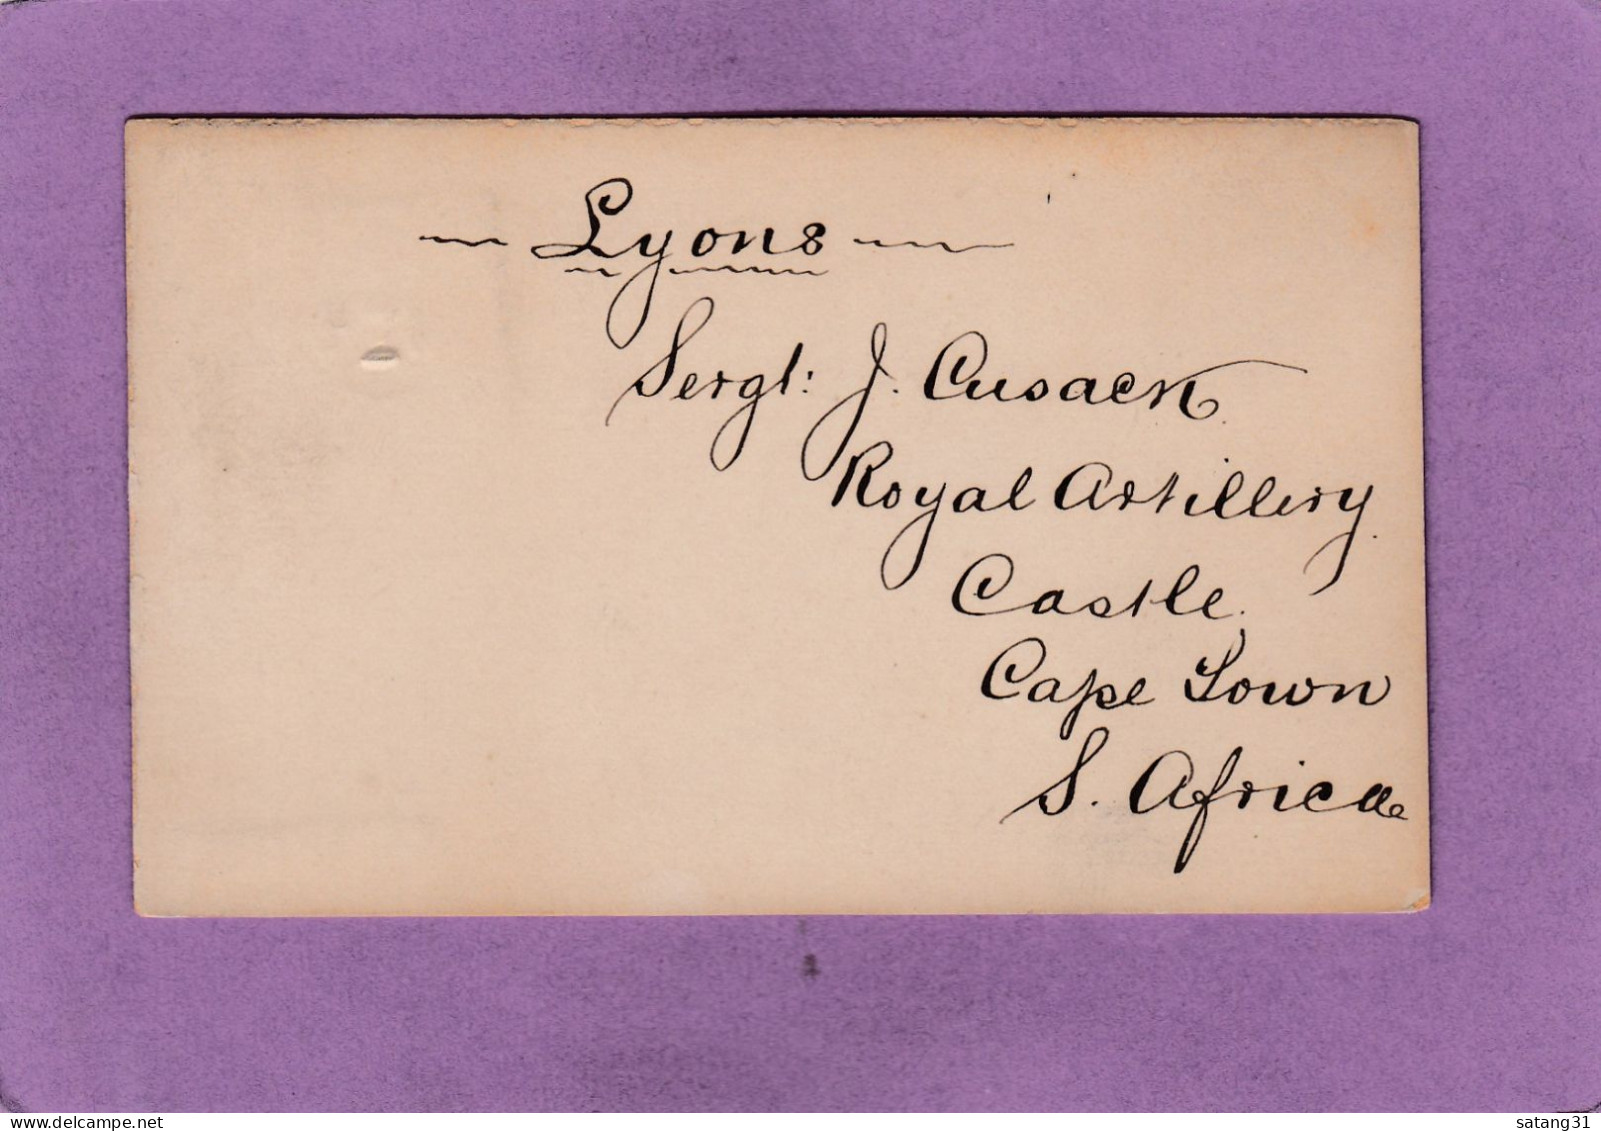 Lyons
Sergt: J. Cusack
Royal Artillery.
Castle.
Cape Town
S. Africa
satang31